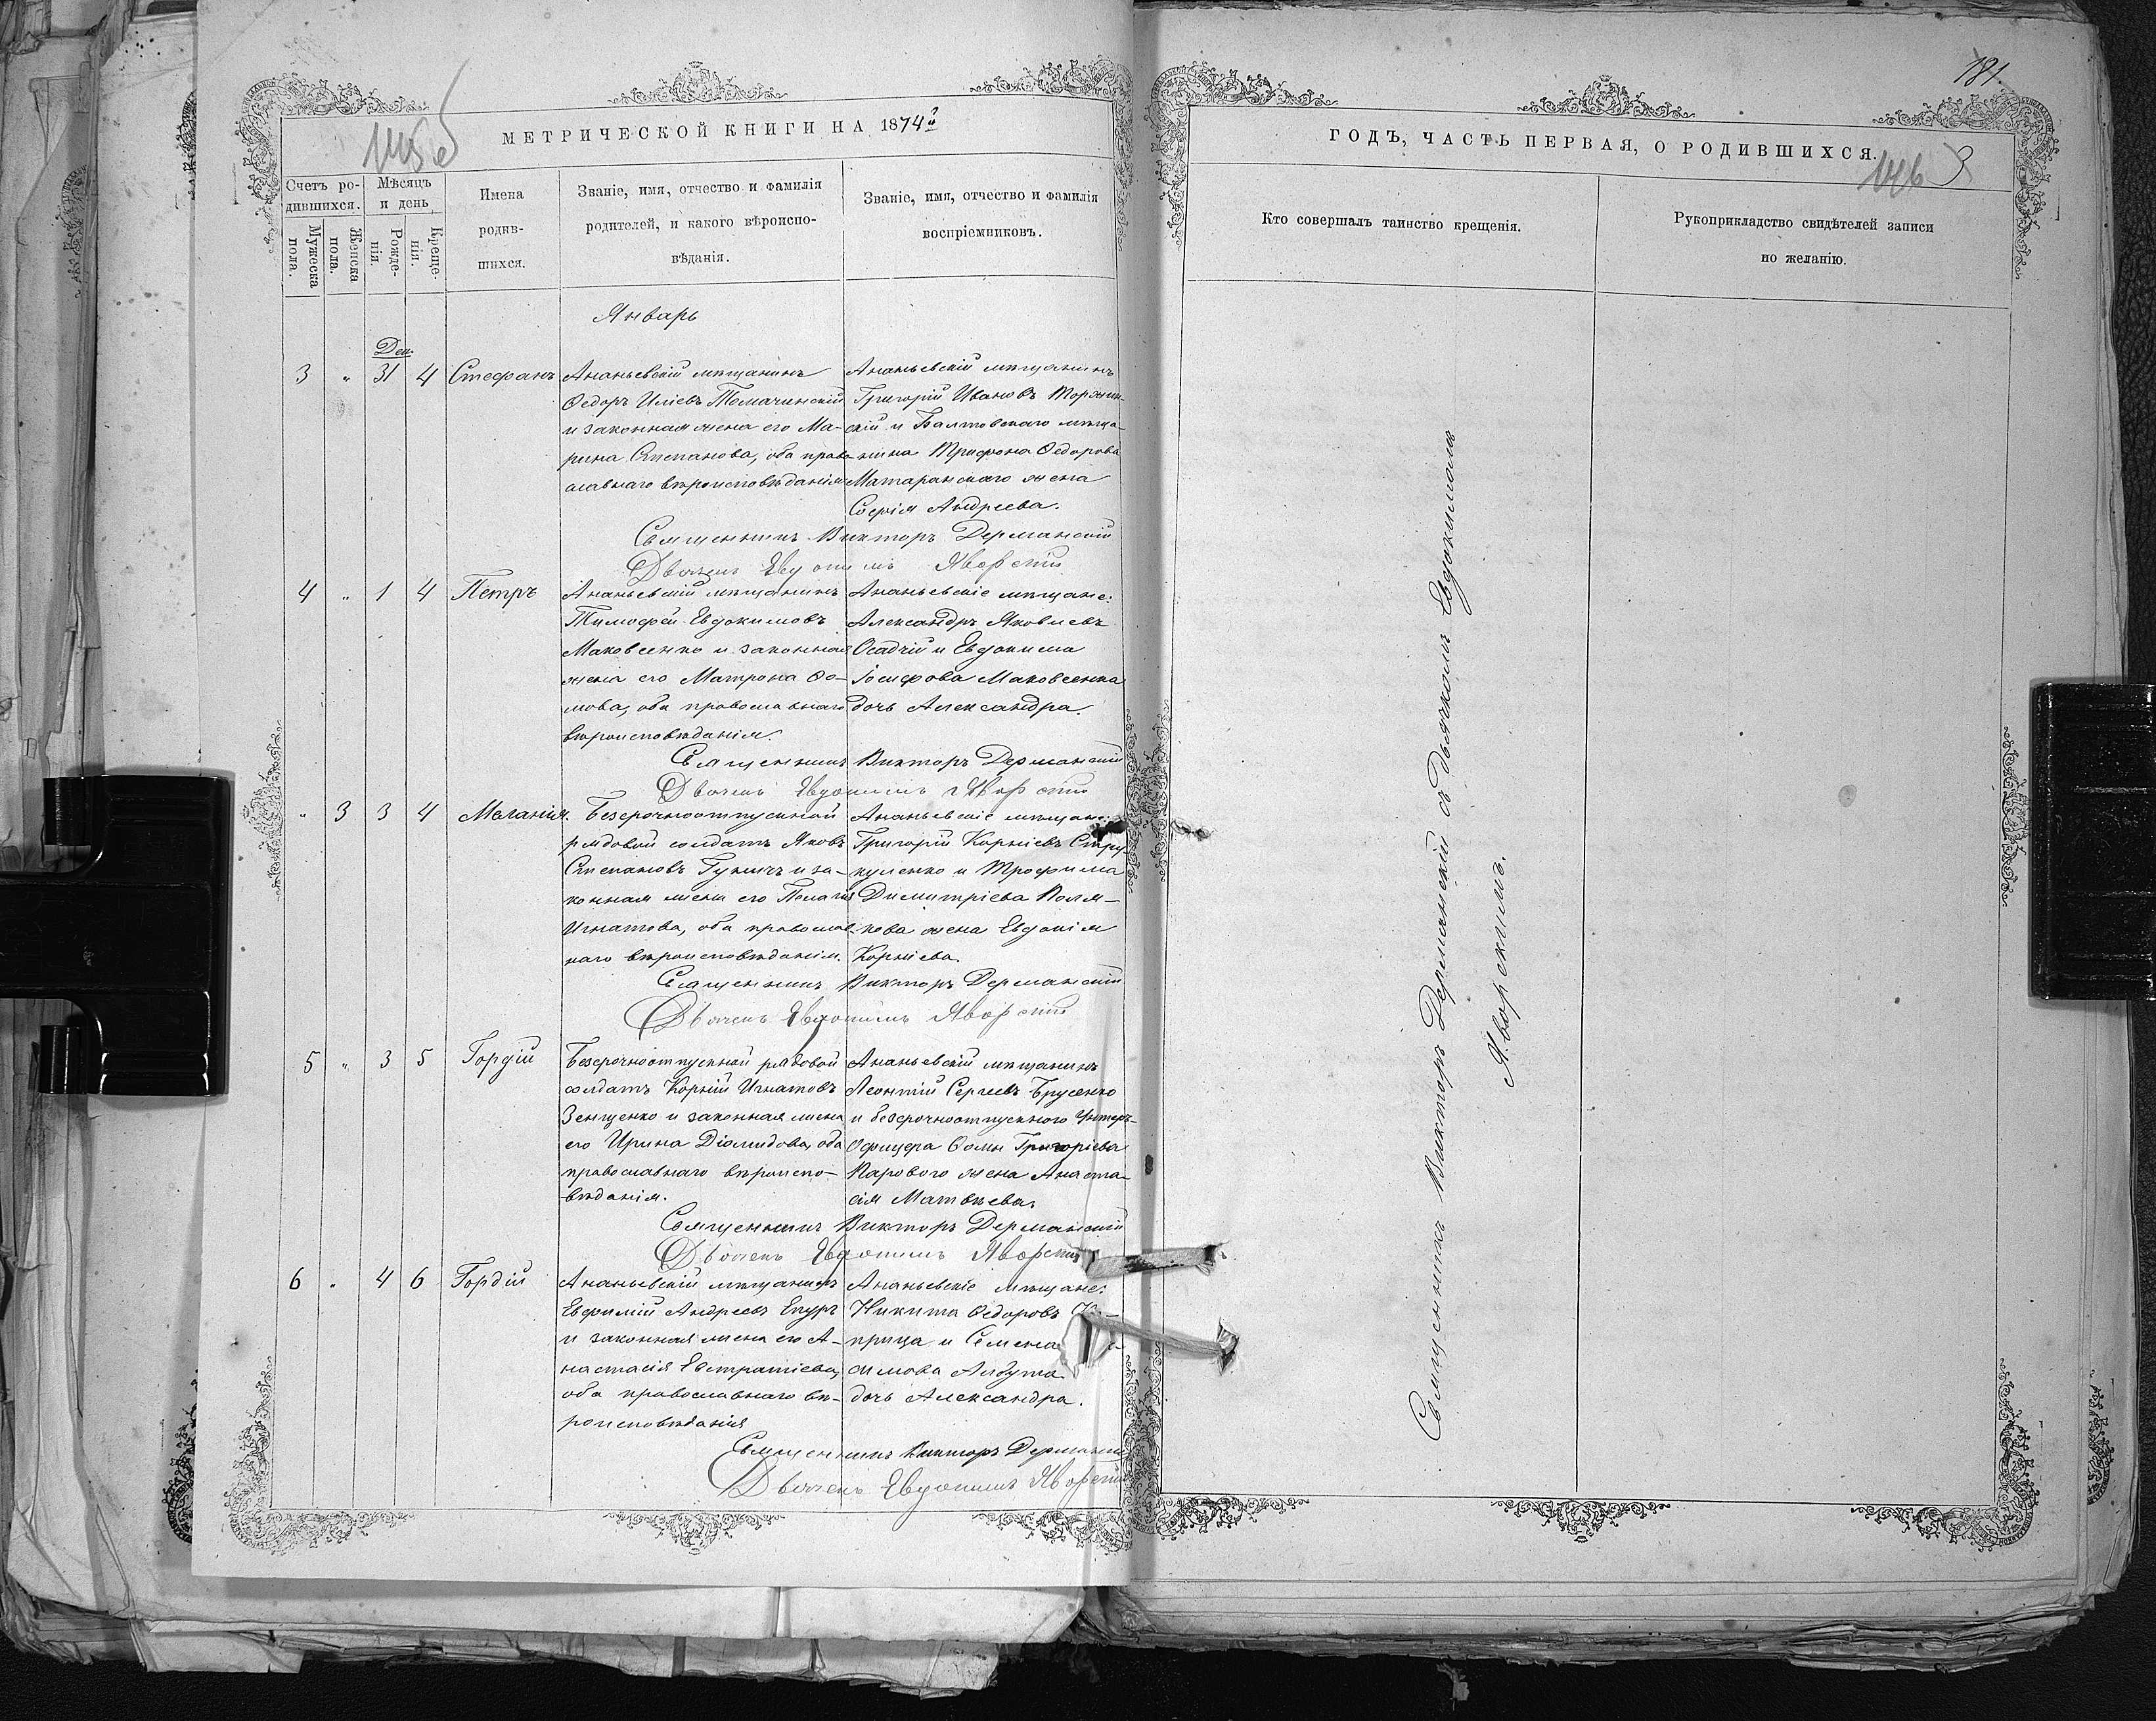 145 об
МЕТРИЧЕСКОЙ КНИГИ НА 1874й
Счетъ ро-
дившихся.
Мужеска
пола.
Женска
пола.
Мѣсяцъ
и день
Рожде-
нія
Креще-
нія.
Имена
родив-
шихся.
Званіе, имя, отчество и фамилія
родителей, и какого вѣроиспо-
вѣданія.
Званіе, имя, отчество и фамилія
воспріемниковъ.
Январь
Дек.
3 " 31 4 Стефанъ
Ананьевскій мѣщанинъ
Ѳедоръ Иліевъ Томачинскій
и законная жена его Ма-
рина Степанова, оба право
славнаго вѣроисповѣданія
Ананьевскій мѣщанинъ
Григорій Ивановъ Торжин-
скій и Балтовскаго мѣща-
нина Трифона Ѳедорова
Матаранскаго жена
Софія Андреева.
Священникъ Викторъ Дерманскій
Дьячекъ Евдокимъ Яворскій
4 " 1 4 Петръ
Ананьевскій мѣщанинъ
Тимофей Евдокимовъ
Маковеенко и законная
жена его Матрона Ѳо-
мова, оба православнаго
вѣроисповѣданія.
Ананьевскіе мѣщане:
Александръ Яковлевъ
Осадчій и Евдокима
Іосифова Маковеенка
дочь Александра.
Священникъ Викторъ Дерманскій
Дьячекъ Евдокимъ Яворскій
" 3 3 4 Меланія.
Безсрочноотпускной
рядовой солдатъ Яковъ
Степановъ Гуничъ и за-
конная жена его Пелагія
Игнатова, оба православ-
наго вѣроисповѣданія.
Ананьевскіе мѣщане:
Григорій Корніевъ Стру-
куленко и Трофима
Димитріева Поля-
кова жена Евдокія
Корніева.
Священникъ Викторъ Дерманскій
Дьячекъ Евдокимъ Яворскій
5 " 3 5 Гордій
Безсрочноотпускной рядовой
солдатъ Корній Игнатовъ
Зенченко и законная жена
его Ирина Діомидова, оба
православнаго вѣроиспо-
вѣданія.
Ананьевскій мѣщанинъ
Леонтій Сергеевъ Брусенко
и безсрочноотпускного Унтеръ-
Офицера Ѳомы Григоріева
Парового жена Анаста-
сія Матвѣева.
Священникъ Викторъ Дерманскій
Дьячекъ Евдокимъ Яворскій
6 " 4 6 Гордій
Ананьевскій мѣщанинъ
Евфимій Андреевъ Епуръ
и законная жена его А-
настасія Евстратіева,
оба православнаго вѣ-
роисповѣданія
Ананьевскіе мѣщане:
Никита Ѳедоровъ
прица и Семена
симова Албута
дочь Александра.
Священникъ Викторъ Дерманскій
Дьячекъ Евдокимъ Яворскій
181.
146
ГОДЪ, ЧАСТЬ ПЕРВАЯ, О РОДИВШИХСЯ.
3
Кто совершалъ таинство крещенія.
Рукоприкладство свидѣтелей записи
по желанію.
Священникъ Викторъ Дерманскій съ Дьячкомъ Евдокимомъ
Яворскимъ.